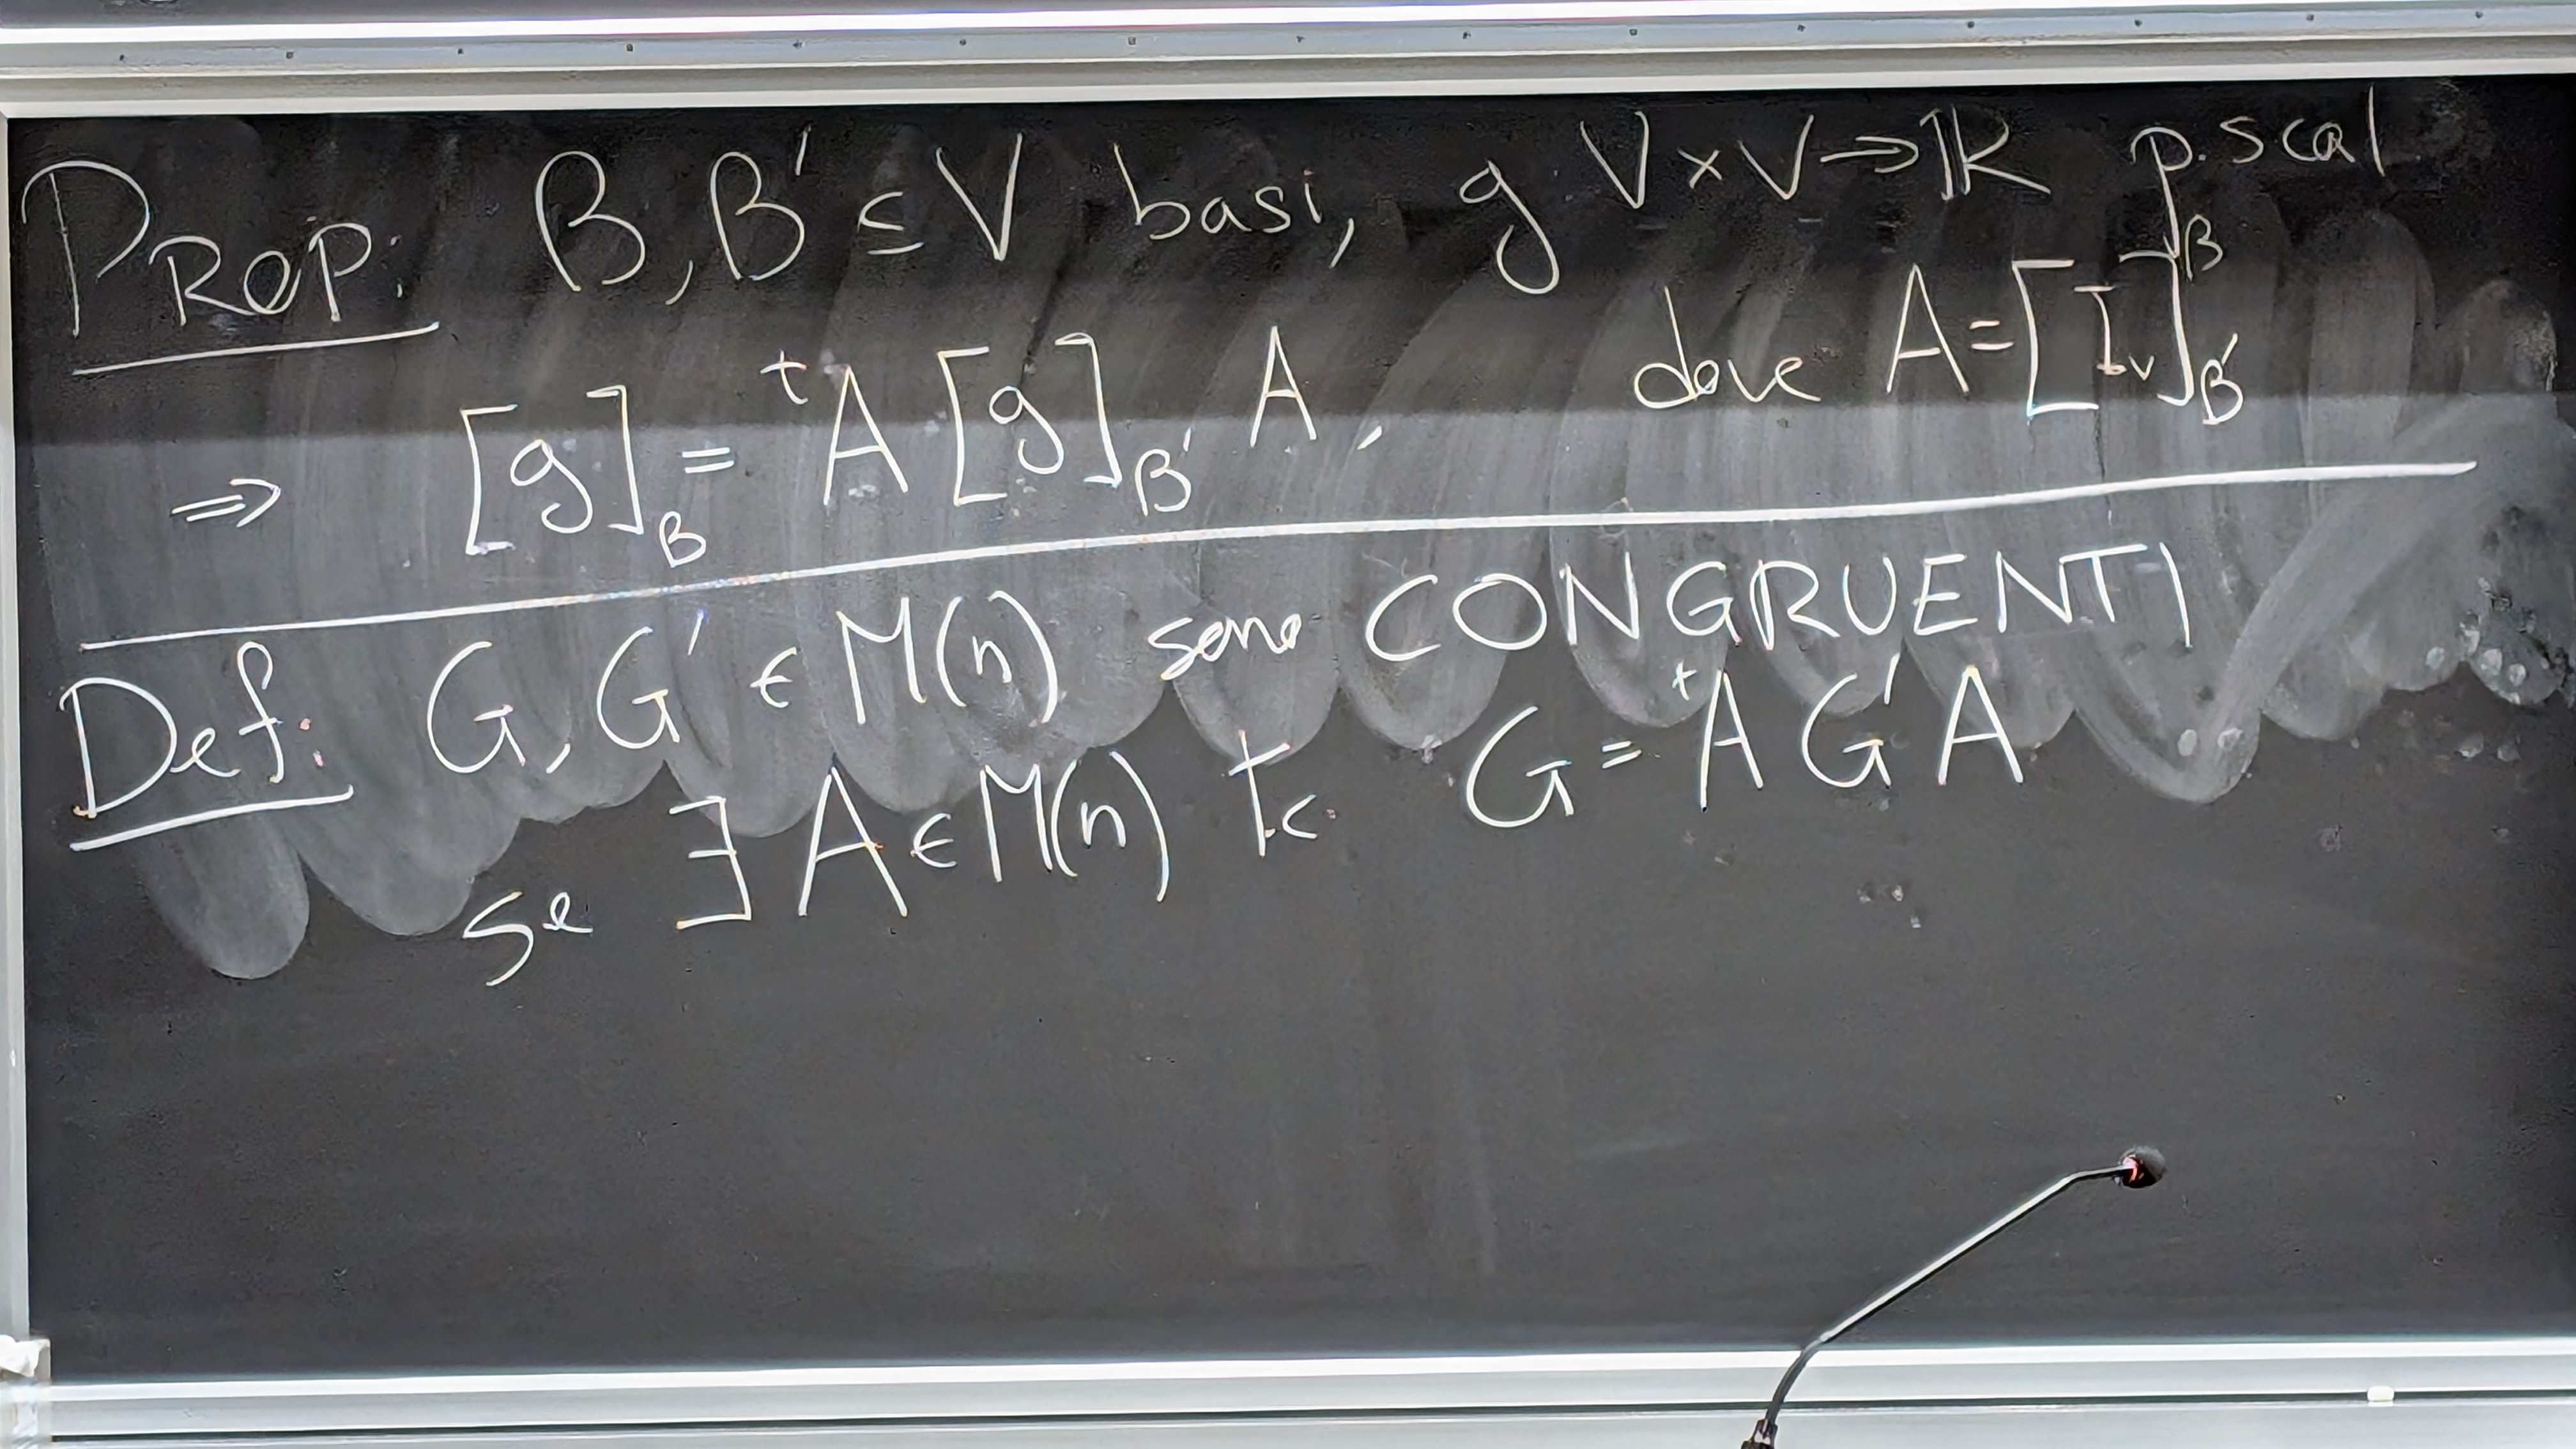 PROP: B, B' ⊆ V basi, g V×V→ℝ p.scal
⇒ [g]_B = ᵗA [g]_B' A, dove A = [I_V]^B_B'
Def: G, G' ∈ M(n) sono CONGRUENTI
se ∃ A ∈ M(n) t.c. G = ᵗA G' A